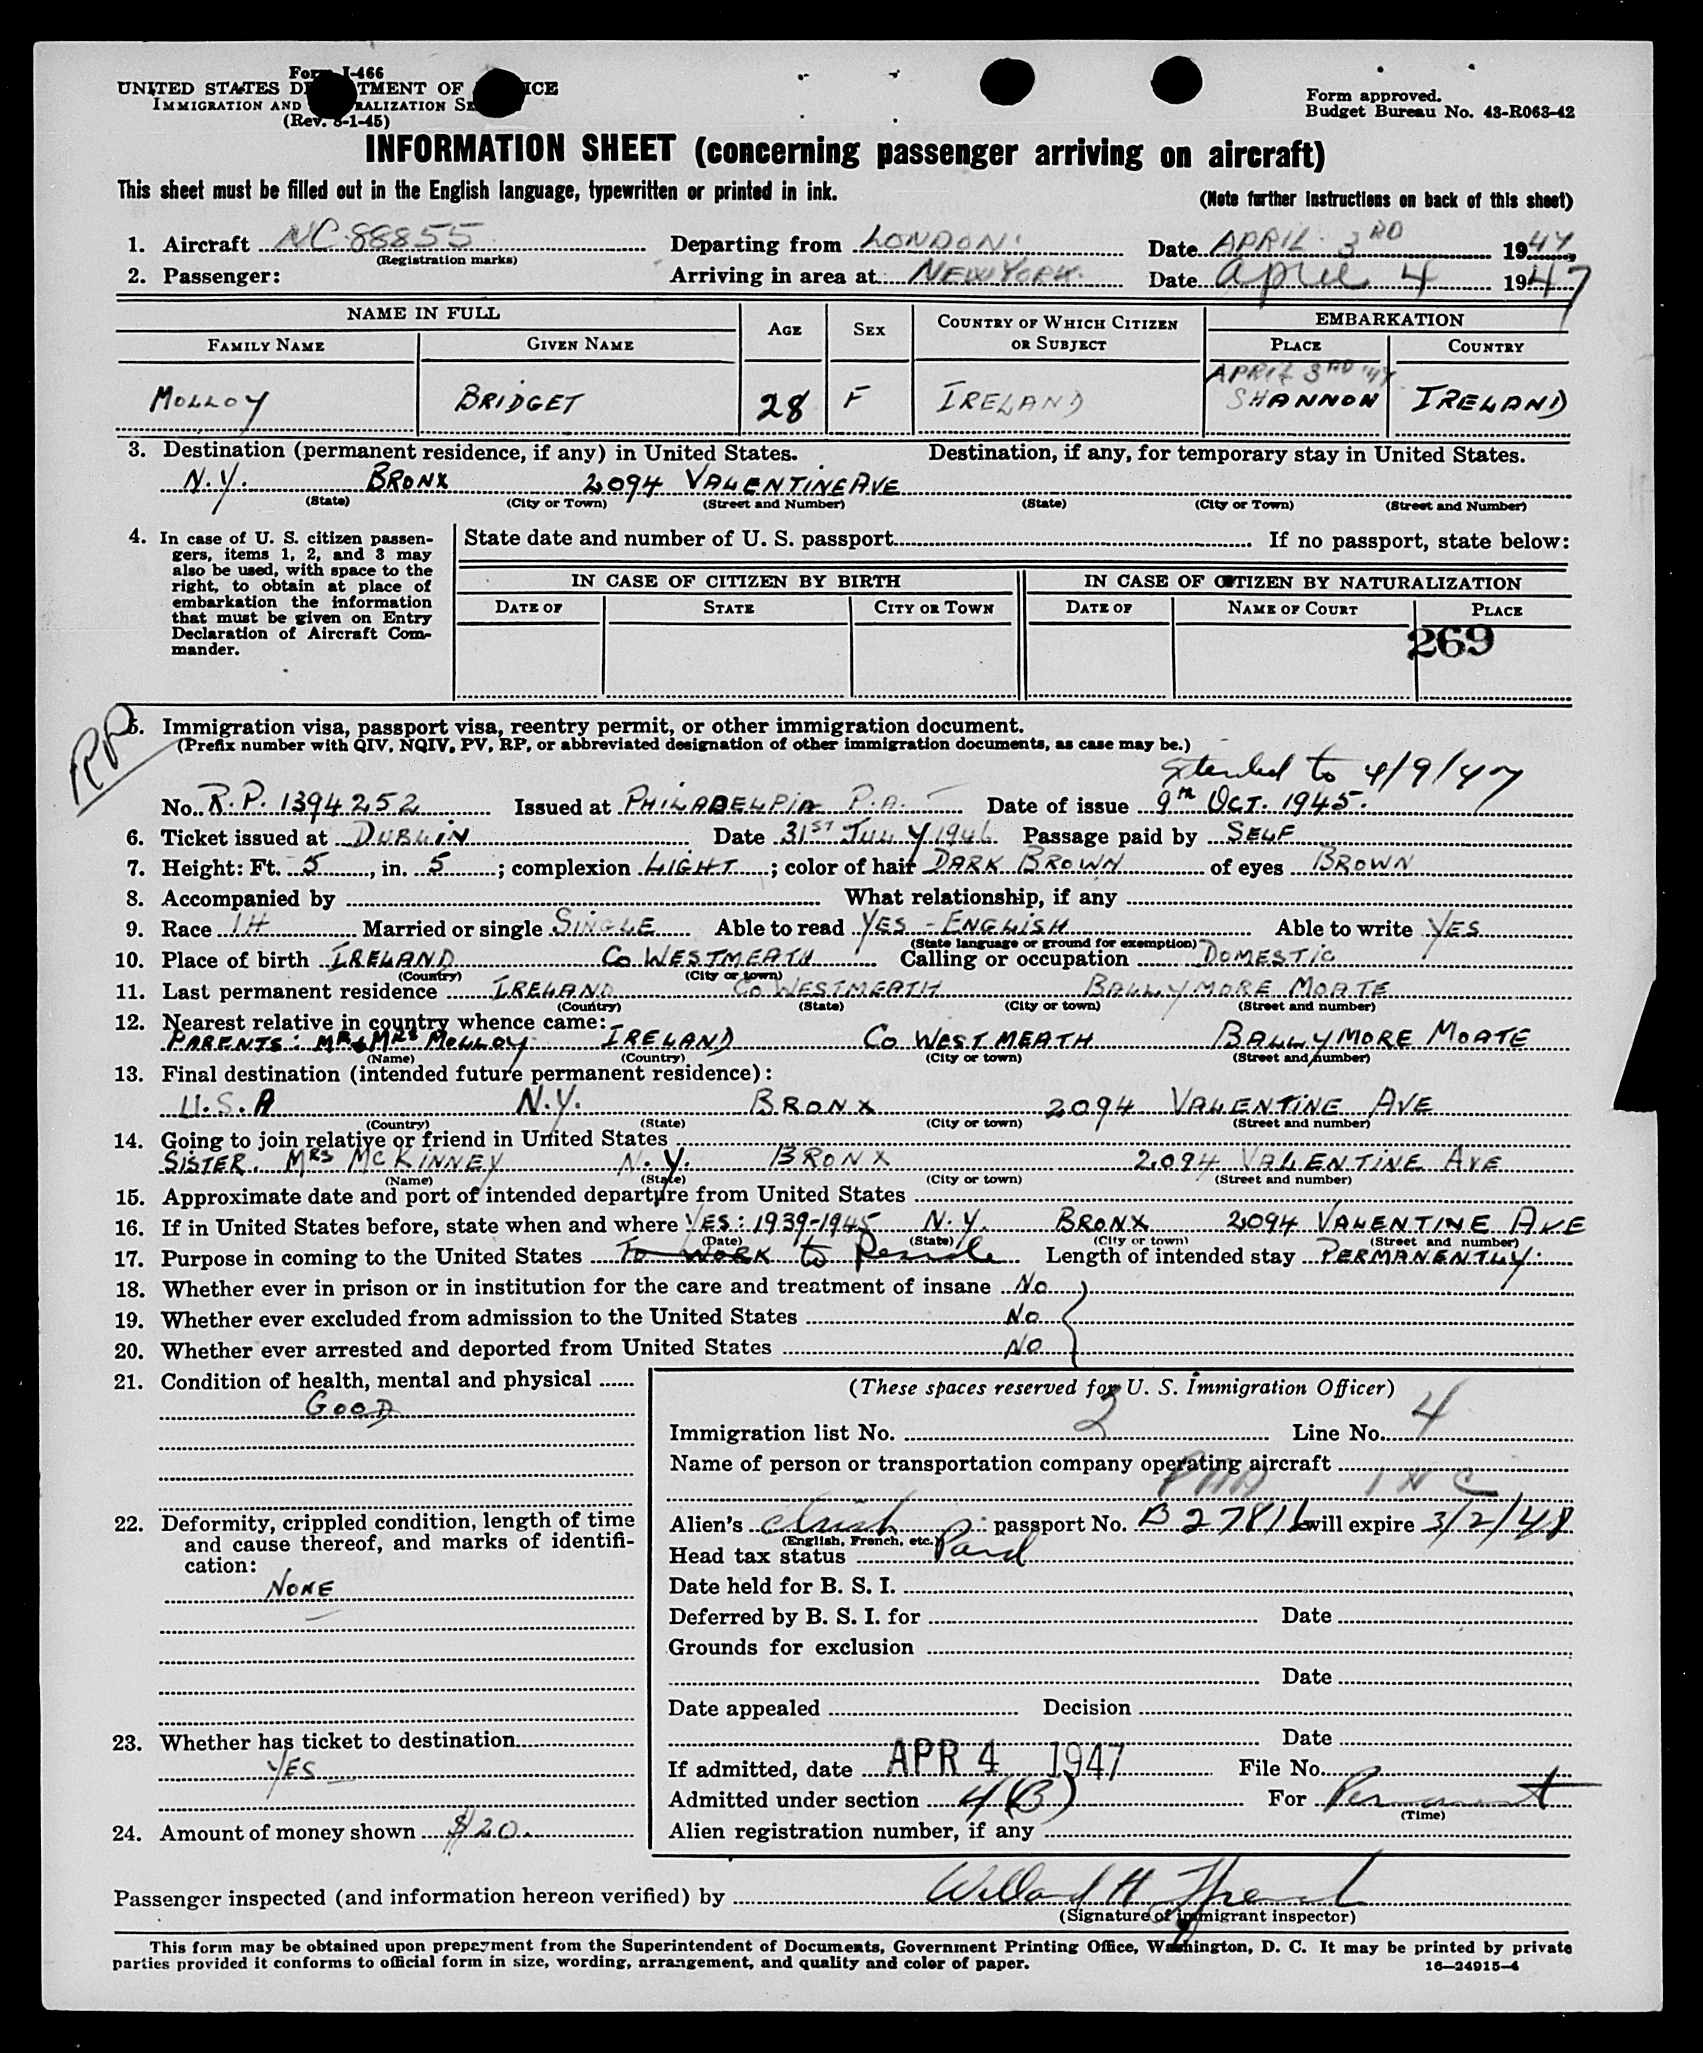 Form I-466
UNITED STATES DEPARTMENT OF JUSTICE
IMMIGRATION AND NATURALIZATION SERVICE
(Rev. 8-1-45)
Form approved.
Budget Bureau No. 43-R063-42
INFORMATION SHEET (concerning passenger arriving on aircraft)
This sheet must be filled out in the English language, typewritten or printed in ink.
(Note further instructions on back of this sheet)
1. Aircraft NC 88855 Departing from LONDON Date APRIL 3RD 1947,
(Registration marks)
2. Passenger: Arriving in area at NEW YORK Date April 4 1947
NAME IN FULL AGE SEX COUNTRY OF WHICH CITIZEN OR SUBJECT EMBARKATION
FAMILY NAME GIVEN NAME PLACE COUNTRY
APRIL 3RD '47
MOLLOY BRIDGET 28 F IRELAND SHANNON IRELAND
3. Destination (permanent residence, if any) in United States. Destination, if any, for temporary stay in United States.
N.Y. BRONX 2094 VALENTINE AVE
(State) (City or Town) (Street and Number) (State) (City or Town) (Street and Number)
4. In case of U. S. citizen passengers, items 1, 2, and 3 may also be used, with space to the right, to obtain at place of embarkation the information that must be given on Entry Declaration of Aircraft Commander.
State date and number of U. S. passport If no passport, state below:
IN CASE OF CITIZEN BY BIRTH IN CASE OF CITIZEN BY NATURALIZATION
DATE OF STATE CITY OR TOWN DATE OF NAME OF COURT PLACE
269
RP
5. Immigration visa, passport visa, reentry permit, or other immigration document.
(Prefix number with QIV, NQIV, PV, RP, or abbreviated designation of other immigration documents, as case may be.)
Extended to 4/9/47
No. R.P. 1394252 Issued at PHILADELPIA P.A. Date of issue 9th OCT. 1945.
6. Ticket issued at DUBLIN Date 31ST JULY 1946 Passage paid by SELF
7. Height: Ft. 5, in. 5; complexion LIGHT; color of hair DARK BROWN of eyes BROWN
8. Accompanied by What relationship, if any
9. Race IH Married or single SINGLE Able to read YES - ENGLISH Able to write YES
(State language or ground for exemption)
10. Place of birth IRELAND CO WESTMEATH Calling or occupation DOMESTIC
(Country) (City or town)
11. Last permanent residence IRELAND CO WESTMEATH BALLYMORE MOATE
(Country) (State) (City or town) (Street and number)
12. Nearest relative in country whence came:
PARENTS: MR & MRS MOLLOY IRELAND CO WESTMEATH BALLYMORE MOATE
(Name) (Country) (City or town) (Street and number)
13. Final destination (intended future permanent residence):
U.S.A N.Y. BRONX 2094 VALENTINE AVE
(Country) (State) (City or town) (Street and number)
14. Going to join relative or friend in United States
SISTER. MRS MCKINNEY N.Y. BRONX 2094 VALENTINE AVE
(Name) (State) (City or town) (Street and number)
15. Approximate date and port of intended departure from United States
16. If in United States before, state when and where YES: 1939-1945 N.Y. BRONX 2094 VALENTINE AVE
(Date) (State) (City or town) (Street and number)
17. Purpose in coming to the United States TO WORK to Reside Length of intended stay PERMANENTLY.
18. Whether ever in prison or in institution for the care and treatment of insane NO
19. Whether ever excluded from admission to the United States NO
20. Whether ever arrested and deported from United States NO
21. Condition of health, mental and physical
GOOD
22. Deformity, crippled condition, length of time and cause thereof, and marks of identification:
NONE
23. Whether has ticket to destination
YES
24. Amount of money shown $20.
(These spaces reserved for U. S. Immigration Officer)
Immigration list No. 2 Line No. 4
Name of person or transportation company operating aircraft
PAA INC
Alien's Irish passport No. B 27816 will expire 3/2/48
(English, French, etc.)
Head tax status Paid
Date held for B. S. I.
Deferred by B. S. I. for Date
Grounds for exclusion
Date
Date appealed Decision
Date
If admitted, date APR 4 1947 File No.
Admitted under section 4(B) For Permanent
(Time)
Alien registration number, if any
Passenger inspected (and information hereon verified) by Willard H
(Signature of immigrant inspector)
This form may be obtained upon prepayment from the Superintendent of Documents, Government Printing Office, Washington, D. C. It may be printed by private
parties provided it conforms to official form in size, wording, arrangement, and quality and color of paper.
16-24915-4